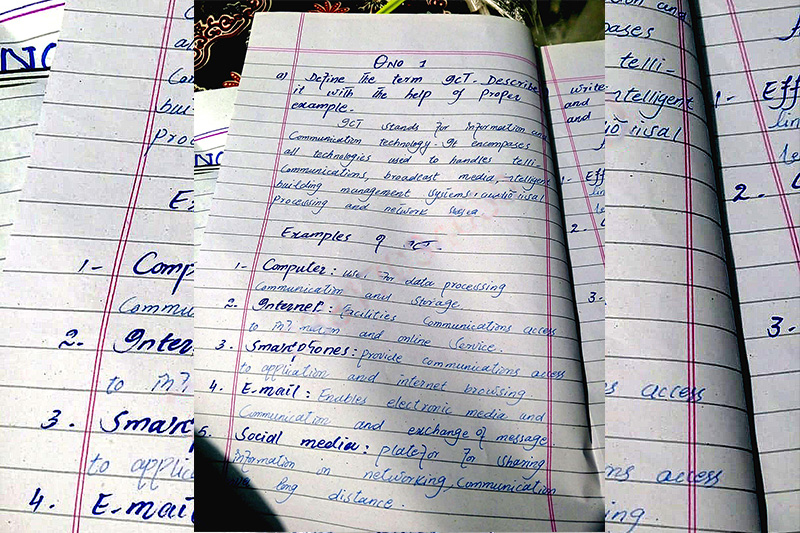 QNO 1
a) Define The term ICT. Describe
it with The help of proper
example.
ICT stands for information and
Communication technology. It encompases
all technologies used to handles telli-
Communications, broadcast media, ntelligent
building management systems, audio visal
processing and network
Examples of ICT.
1- Computer: use for data processing
Communication and Storage
2. Internet: Facilities Communications access
to and online Service.
3. Smartphones: provide communications access
to application and internet browsing
4. E-mail: Enables electronic media and
Communication and exchange of message
5. Social media: platefor for sharing
information on networking, Communication
long distance.
write
and
and
1- Eff
2.
3-